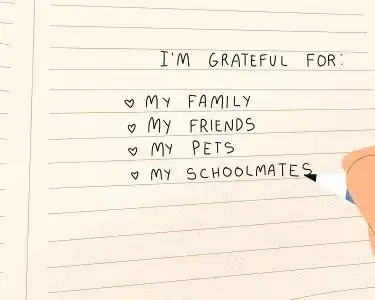 I'M GRATEFUL FOR:
♡ MY FAMILY
♡ MY FRIENDS
♡ MY PETS
♡ MY SCHOOLMATES